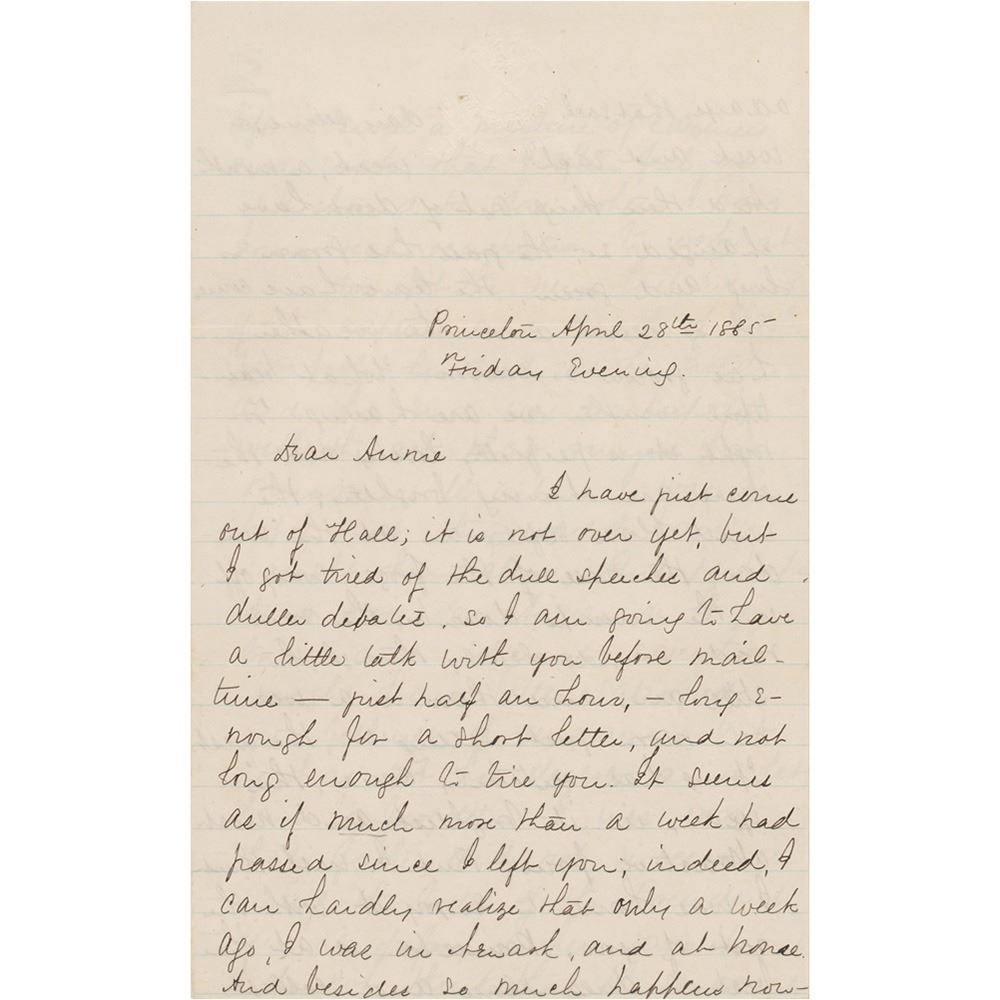 Princeton April 28th 1865
Friday Evening.
Dear Annie
I have just come
out of Hall; it is not over yet, but
I got tired of the dull speeches and
duller debates. So I am going to have
a little talk with you before mail-
time — just half an hour, — long e-
nough for a short letter, and not
long enough to tire you. It seems
as if much more than a week had
passed since I left you; indeed, I
can hardly realize that only a week
ago, I was in Newark, and at home.
And besides so much happens now-